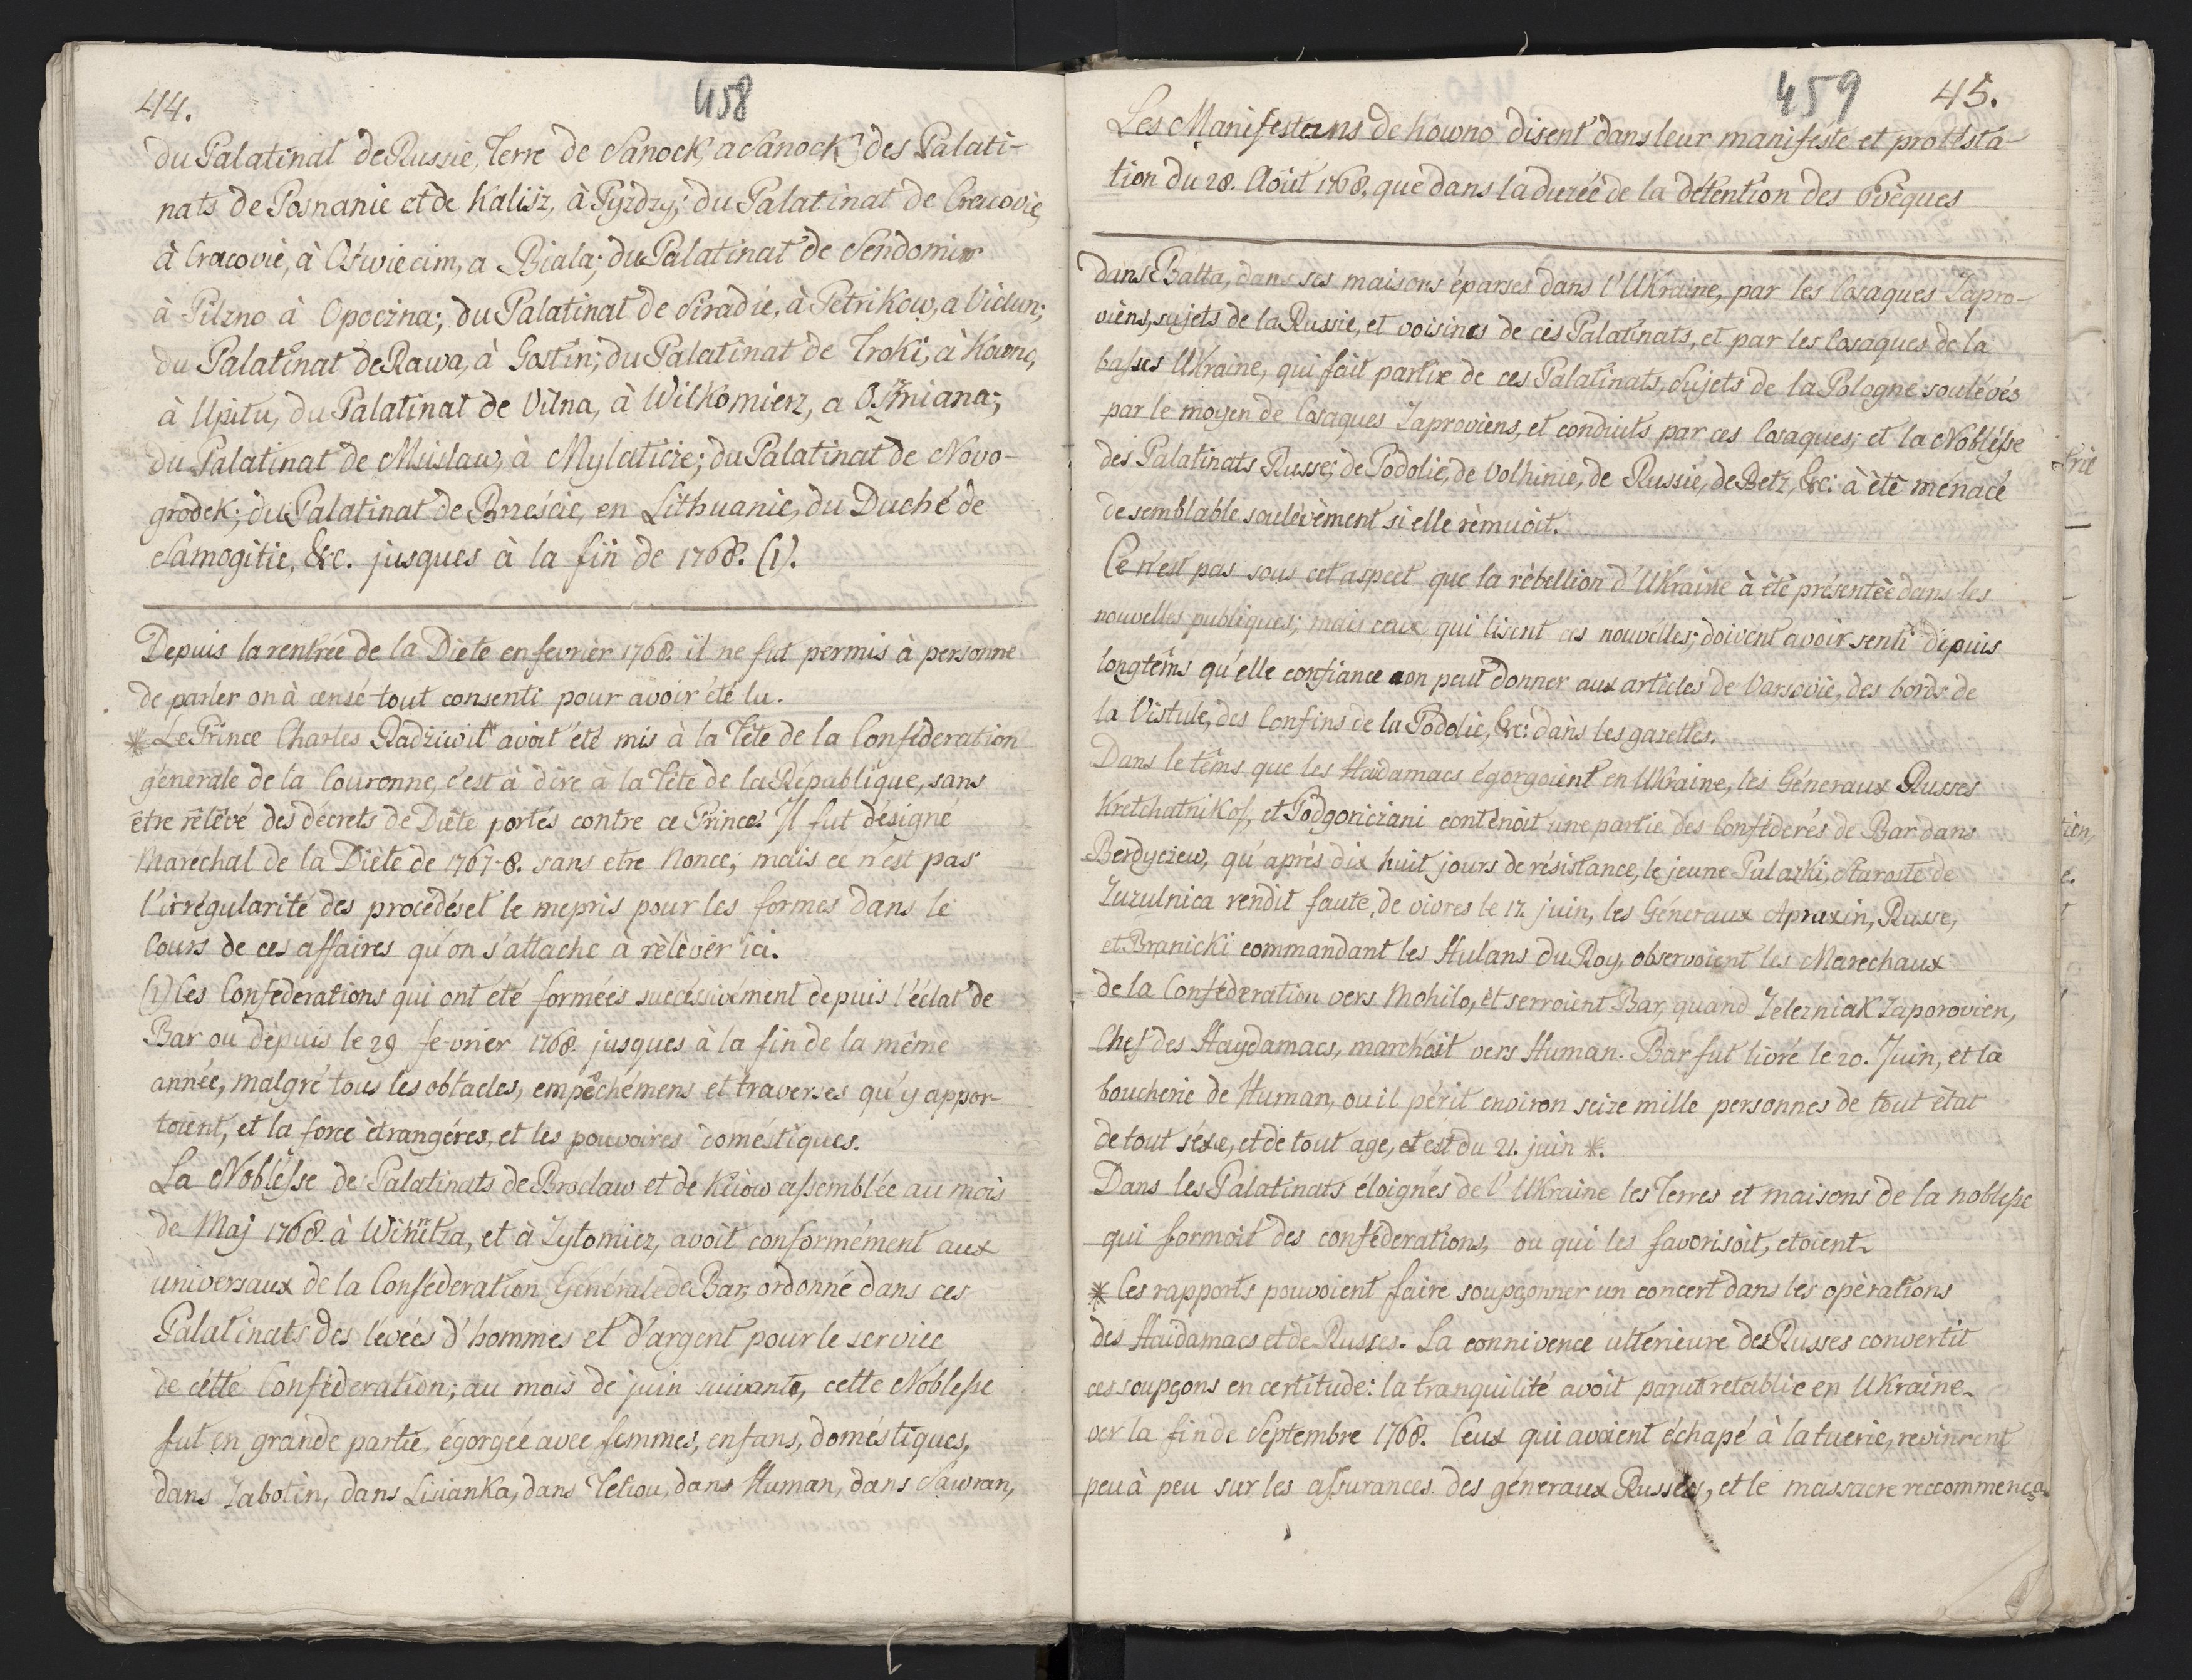 44.
458
du Palatinat de Russie, Terre de Sanock, a Sanock, des Palati-
nats de Posnanie et de Kalisz, à Pyzdry; du Palatinat de Cracovie,
à Cracovie, à Oswiecim, a Biala; du Palatinat de Sendomir
à Pilzno à Opoczna; du Palatinat de Siradie, à Petrikow, a Vidun;
du Palatinat de Rawa, à Gostin; du Palatinat de Troki, à Kowno,
à Upitu, du Palatinat de Vilna, à Wilkomierz, a Oszmiana;
du Palatinat de Mscislaw, à Mylaticze; du Palatinat de Novo-
grodek; du Palatinat de Brzescie, en Lithuanie, du Duché de
Samogitie, &c. jusques à la fin de 1768. (1).
Depuis la rentrée de la Diéte en fevrièr 1768. il ne fut permis à personne
de parler on à censé tout consenti pour avoir été lu.
* Le Prince Charles Radziwil avoit été mis à la Tête de la Conféderation
génerale de la Couronne, c'est à dire à la Tête de la République, sans
être rélévé des décrets de Diéte portés contre ce Prince. Il fut désigné
Maréchal de la Diéte de 1767-8. sans etre Nonce; mais ce n'est pas
l'irrégularité des procédés et le mepris pour les formes dans le
Cours de ces affaires qu'on s'attache à rélèvér ici.
(1) Ces Confederations qui ont été formées succéssivement depuis l'éclat de
Bar ou dépuis le 29 fe-vrier 1768. jusques à la fin de la même
année, malgré tous les obtacles, empêchémens et traverses qu'y appor-
toient, et la force ètrangéres, et les pouvoires doméstiques.
La Noblésse de Palatinats de Broclaw et de Kiiow assemblée au mois
de Maj 1768. à Winnitza, et à Zytomierz, avoit conformément aux
universaux de la Conféderation Générale de Bar, ordonné dans ces
Palatinats des lévées d'hommes et d'argent pour le service
de cétte Conféderation; au mois de juin suivante, cette Noblesse
fut en grande partie, égorgée avec femmes, enfans, doméstiques,
dans Zabotin, dans Lisianka, dans Tetiou, dans Human, dans Sawran,
459
45.
Les Manifestans de Kowno disent dans leur maniféste et protésta-
tion du 28. Août 1768. que dans la durée de la détention des Evèques
dans Balta, dans ses maisons éparses dans l'Ukraine, par les Cosaques Zapro-
viens, sujets de la Russie, et voisines de ces Palatinats, et par les Cosaques de la
basses Ukraine, qui fait partie de ces Palatinats, Sujets de la Pologne soulévés
par le moyen de Cosaques Zaproviens, et conduits par ces Cosaques; et la Noblésse
des Palatinats Russe; de Podolie, de Volhinie, de Russie, de Betz, &c: à été ménacé
de semblable soulévèment si elle rémuoit.
Ce n'est pas sous cet aspect que la rébellion d'Ukraine à été présentée dans les
nouvelles publiques; mais ceux qui lisent ces nouvelles; doivent avoir senti dépuis
longtêms qu'elle confiance on peut donner aux articles de Varsovie, des bords de
la Vistule, des Confins de la Podolie, &c: dans les gazettes.
Dans le têms que les Haidamacs égorgoient en Ukraine, les Géneraux Russes
Kretchatnikof, et Podgoricziani contenoit une partie des Conféderés de Bar dans
Berdyczew, qu'aprés dix huit jours de résistance, le jeune Pulaski, Staroste de
Zuzulnica rendit faute, de vivres le 17 juin, les Géneraux Apraxin, Russe,
et Branicki commandant les Hulans du Roy, observoient les Marechaux
de la Conféderation vers Mohilo, et serroient Bar, quand Zelezniak Zaporovien,
Chef des Haydamacs, marchoit vers Human. Bar fut livré le 20. Juin, et la
boucherie de Human, ou il périt environ seize mille personnes de tout état
de tout séxe, et de tout age, et est du 21. juin *.
Dans les Palatinats éloignés de l'Ukraine les Terres et maisons de la noblesse
qui formoit des conféderations, ou qui les favorisoit, etoient
* Ces rapports pouvoient faire soupçonner un concert dans les opèrations
des Haidamacs et de Russes. La connivence ultérieure des Russes convertit
ces soupçons en certitude: la tranquilité avoit parut retablie en Ukraine
ver la fin de Septembre 1768. Ceux qui avoient échapé à la tuerie, revinrent
peu à peu sur les assurances des géneraux Russes, et le massacre recommença.